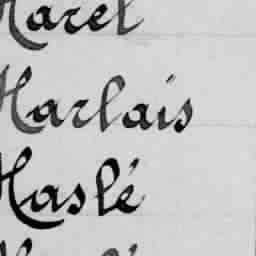 Harel
Harlais
Haslé